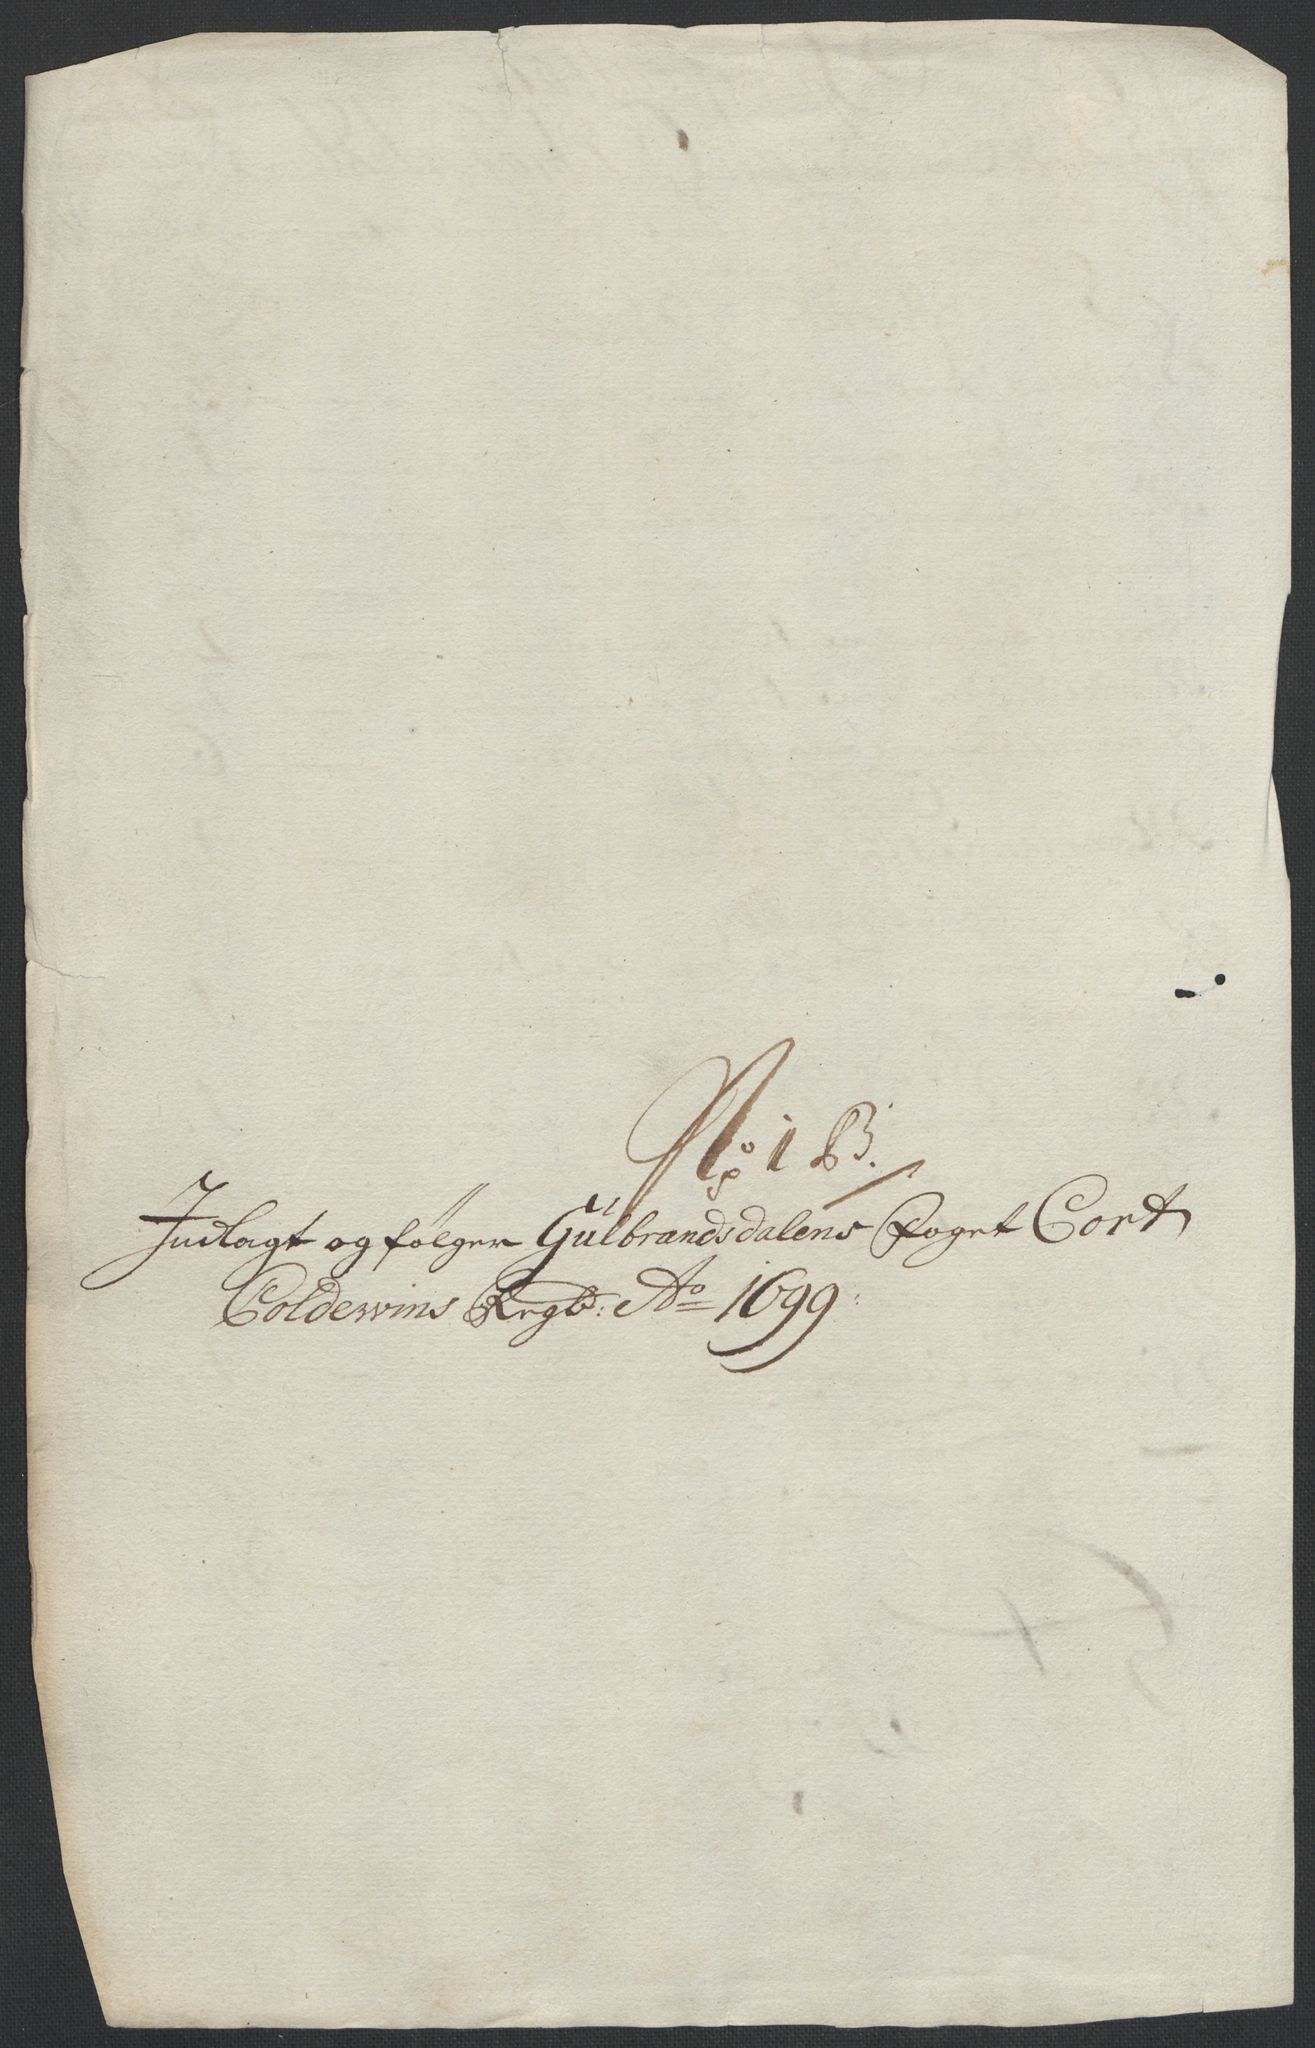 No: 1 B.
Indlagt og følger Gülbrandsdalens Foget Cort
Coldewins Regb: Ao 1699: